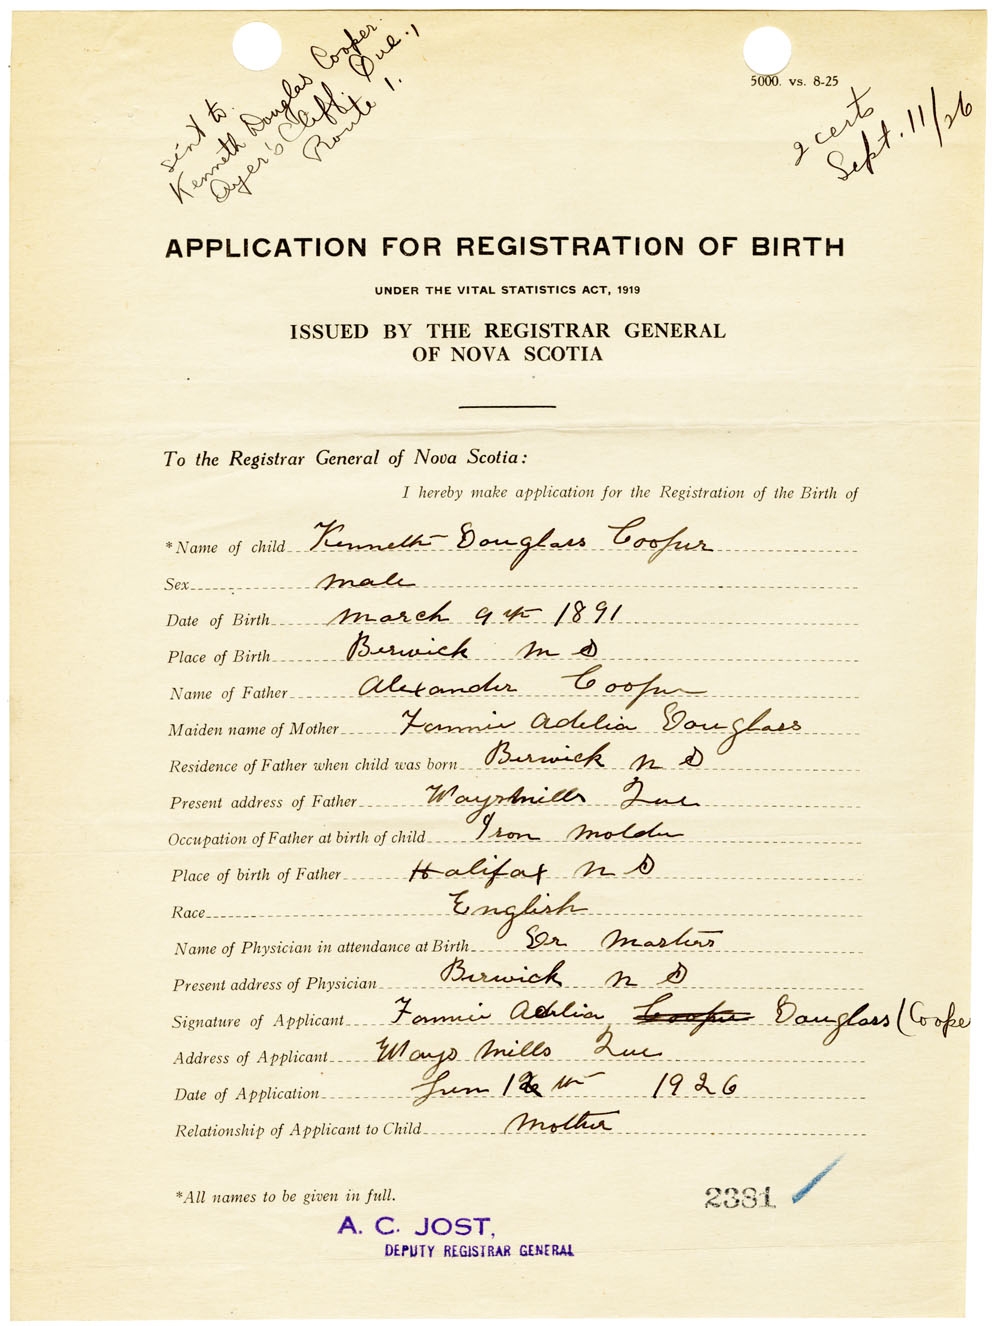 sent to.
Kenneth Douglas Cooper.
Ayer's Cliff. Que.,
Route 1.
5000. vs. 8-25
2 certs
Sept. 11/26
APPLICATION FOR REGISTRATION OF BIRTH
UNDER THE VITAL STATISTICS ACT, 1919
ISSUED BY THE REGISTRAR GENERAL
OF NOVA SCOTIA
To the Registrar General of Nova Scotia:
I hereby make application for the Registration of the Birth of
*Name of child Kenneth Douglass Cooper
Sex male
Date of Birth march 9th 1891
Place of Birth Berwick N S
Name of Father Alexander Cooper
Maiden name of Mother Fannie Adelia Douglass
Residence of Father when child was born Berwick N S
Present address of Father Ways mills Que
Occupation of Father at birth of child Iron molder
Place of birth of Father Halifax N S
Race English
Name of Physician in attendance at Birth Dr Masters
Present address of Physician Berwick N S
Signature of Applicant Fannie Adelia Cooper Douglass (Coope
Address of Applicant Ways Mills Que
Date of Application 1926
Relationship of Applicant to Child mother
*All names to be given in full.
2381
A. C. JOST,
DEPUTY REGISTRAR GENERAL